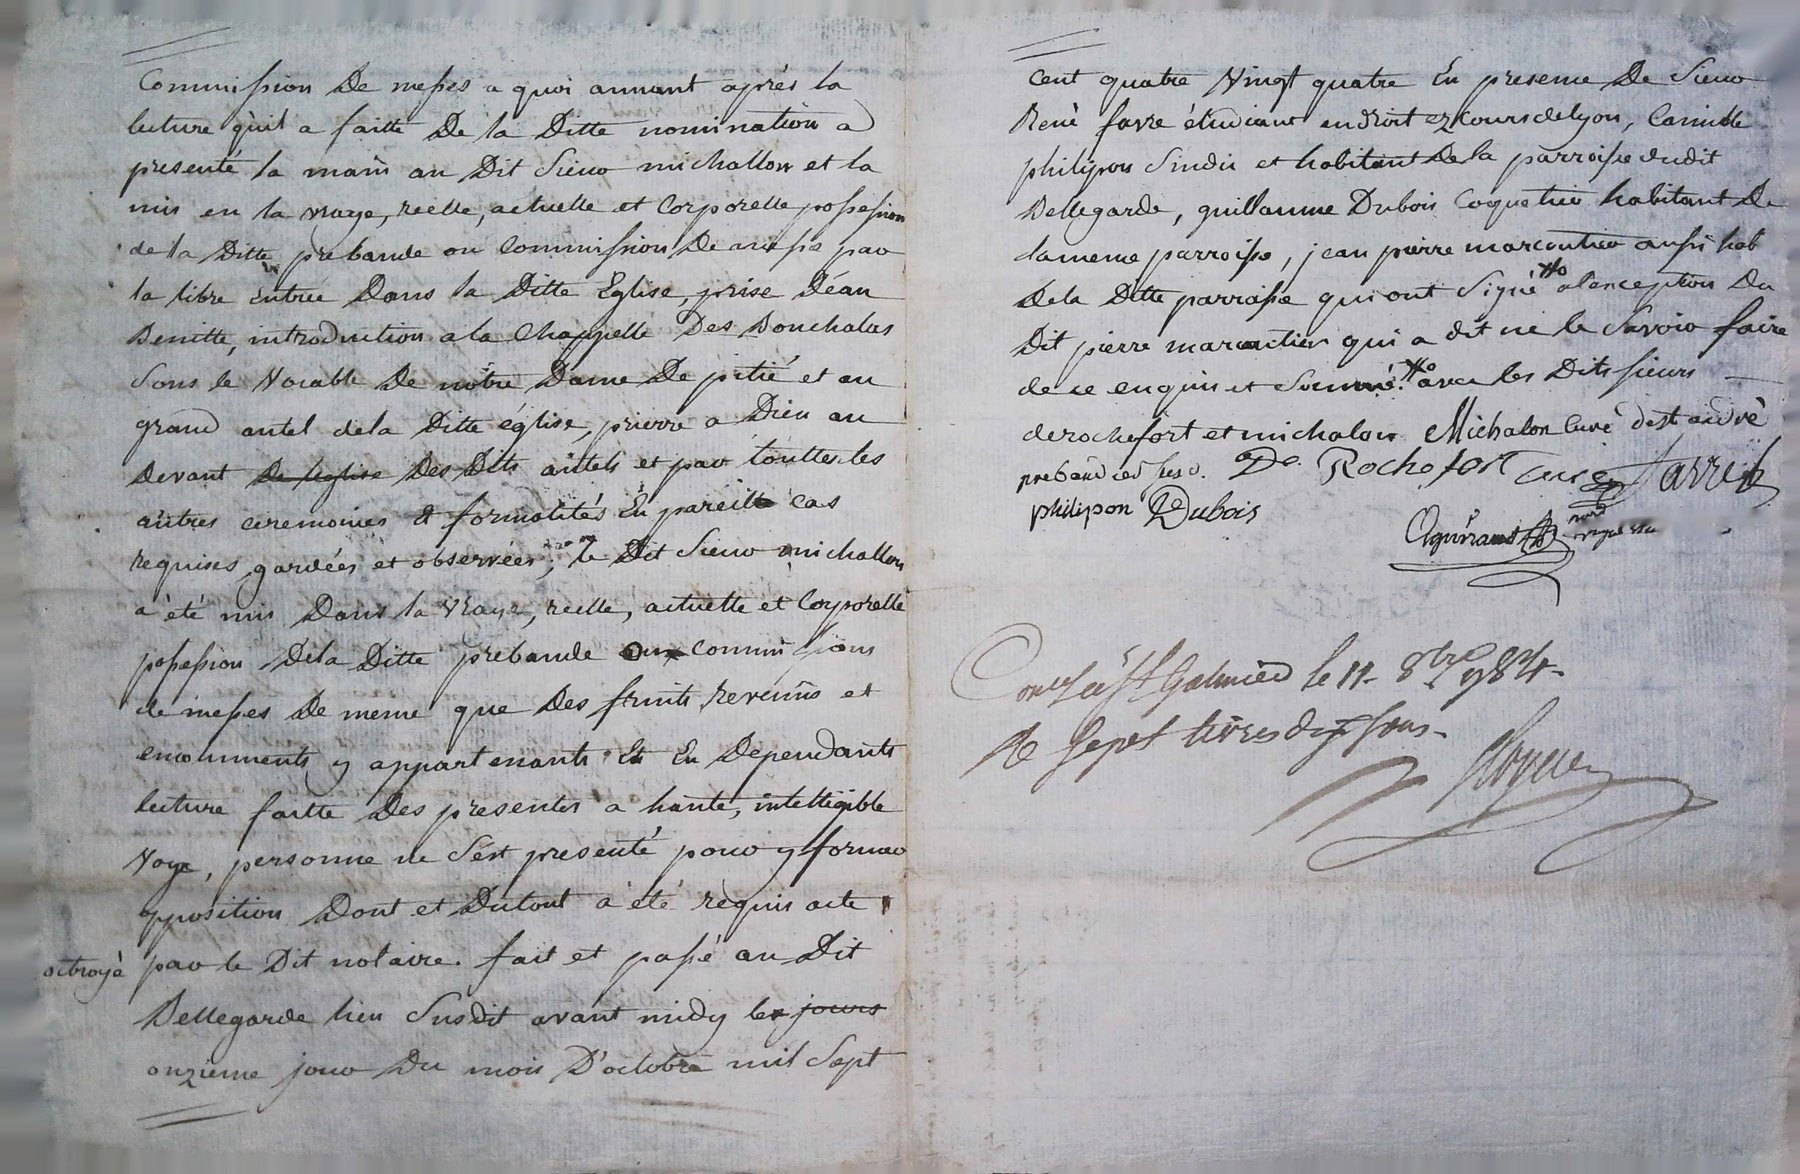 Commission De messes a quoi annuant après la
lecture qu'il a faitte De la Ditte nomination a
presenté la main au Dit Sieur michallon et la
mis en la vraye, réelle, actuelle et Corporelle possession
de la Ditte prebande ou Commission De messe par
la libre entrée Dans la Ditte Eglise, prise Déau
Benitte, introduction a la Chappelle Des Bouchalas
Sous le Vocable De nôtre Dame De pitié et au
grand autel dela Ditte église, prierre a Dieu au
Devant De leglise Des Dits autels et par touttes les
autres ceremonies & formalités En pareille cas
requises gardées et observées; le Dit Sieur michallon
a été mis Dans la vraye, réelle, actuelle et Corporelle
possession Dela Ditte prebande ou commissions
de messes De meme que Des fruits, revenus et
emoluments y appartenants Et En Dependants
lecture faitte Des presentes a haute, intelligible
Voye, personne ne s'est presenté pour y former
opposition Dont et Dutout a été requis acte
octroyé par le Dit notaire. fait et passé au Dit
Bellegarde lieu Susdit avant midy les jours
onzieme jour Du mois D'octobre mil Sept
cent quatre Vingt quatre En presence De Sieur
René favre étudiant en droit ez cours de lyon, Camille
philipon Sindic et habitant De la parroisse dudit
Bellegarde, guillaume Dubois Coquetier habitant De
la meme parroisse, jean pierre marcoutier aussi hab
Dela Ditte parroisse qui ont Signé a lexception Du
Dit pierre marcoutier qui a dit ne le Savoir faire
de ce enquis et Sommé. avec les Dits sieurs
derochefort et michalon Michalon Curé de st andré
prebandier De Rochefort curé favre
philipon Dubois
Con lé a St Galmier le 11 8bre 1784
R Sept livres dix sous